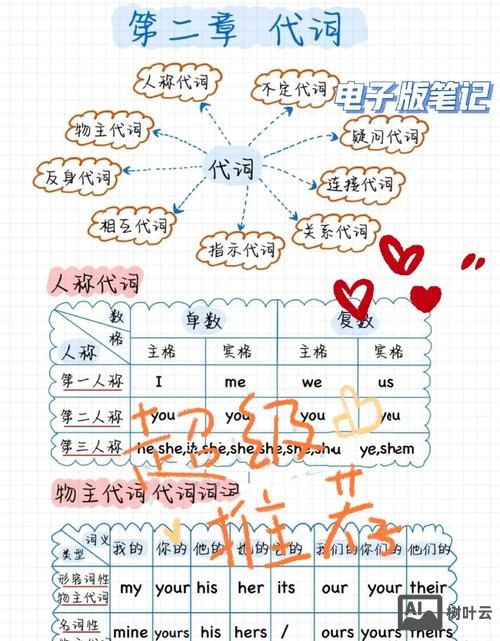 第二章 代词
电子版笔记
人称代词
不定代词
物主代词
疑问代词
反身代词
代词
连接代词
相互代词
指示代词
关系代词
人称代词
数
格
人称
单数
复数
主格
宾格
主格
宾格
第一人称 I me we us
第二人称 you you you yeu
第三人称 he,she,it, she,she,she,shu ye,shem
超级
推荐
物主代词代词词词
词义
类型
我的 你的 他的 她的 它的 我们的 你们的 他们的
形容词性
物主代词
my your his her its our your their
名词性
物主代词
mine yours his hers / ours yours theirs
AI 树叶云